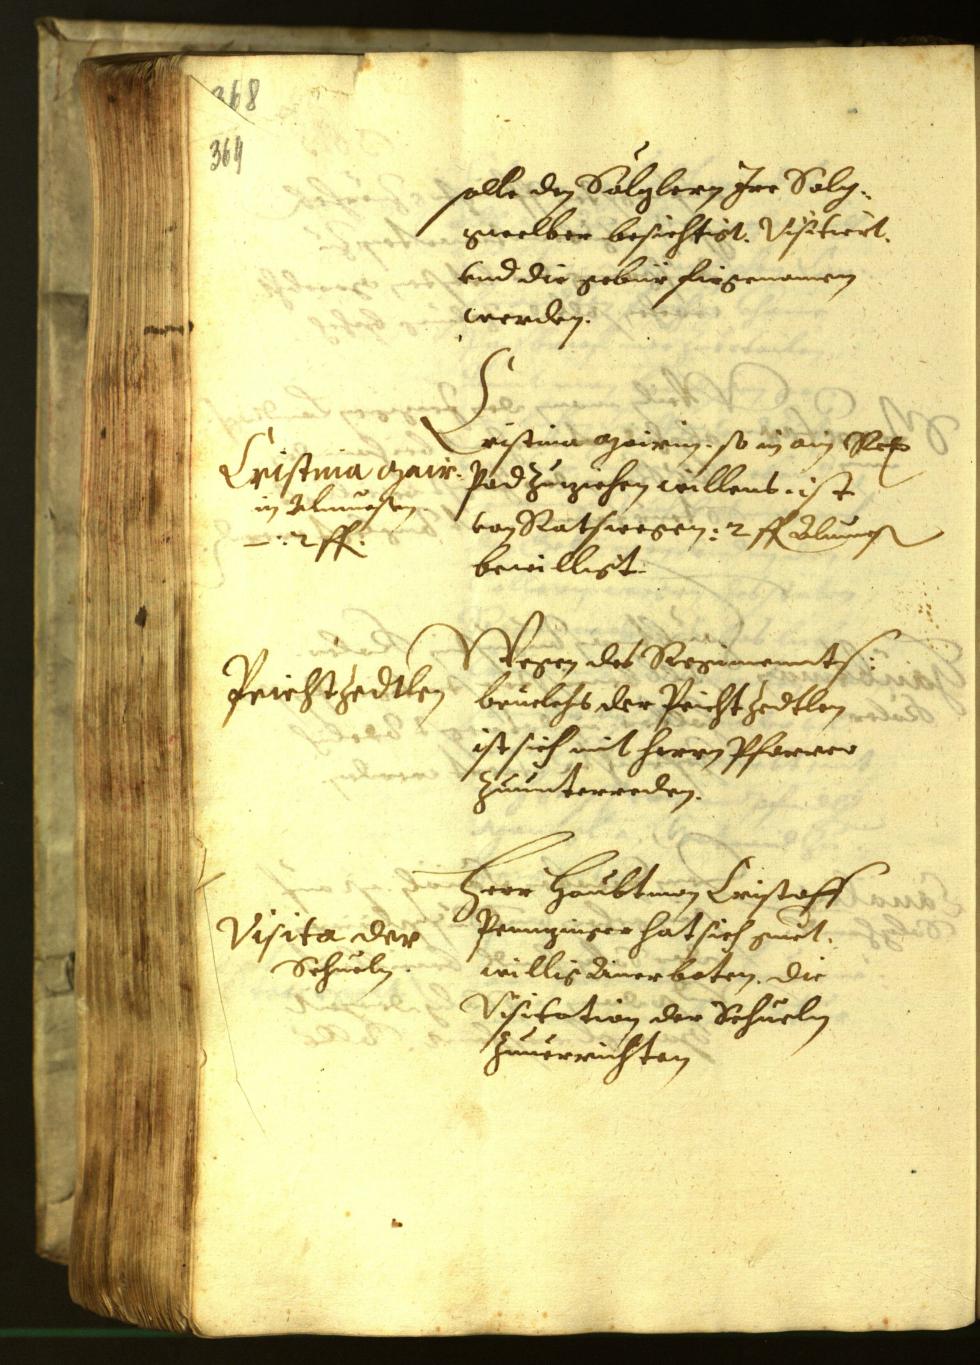 368
364
solle den Sälzlern Ire Salz-
gwelber besichtigt. Visitiert.
vnd die gebür fürgenomen
werden.
Cristina Mair-
in Almuesen.
–: 2 ff:
Cristina Mairin. so in ain
Pad zuziehen willens. ist
von Ratswegen: 2 ff Almues
bewilligt.
Peichtzedtlen
Wegen des Regiments
beuelchs der Peichtzedtlen
ist sich mit herrn Pfarrer
zuunterreden.
Visita der
Schueln.
Herr Haubtman Cristoff
hat sich guet-
willig anerboten. die
Visitation der Schueln
zuuerrichten